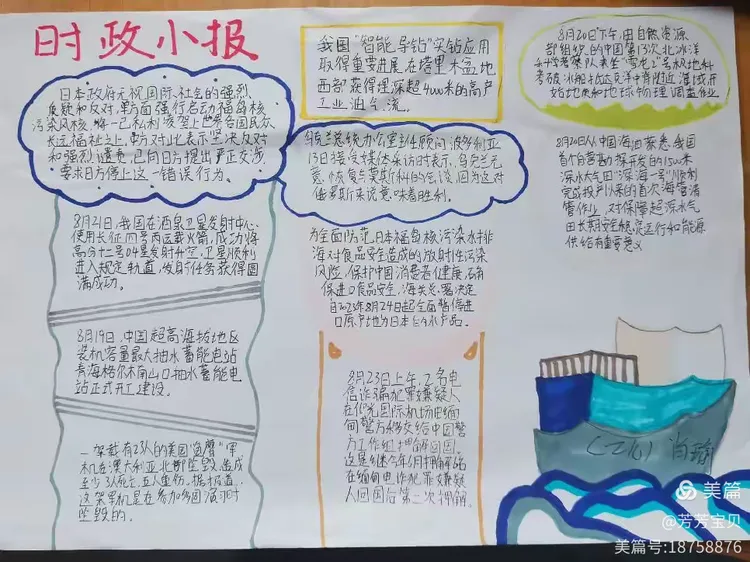 时政小报
日本政府无视国际社会的强烈
质疑和反对,单方面强行启动福岛核
污染风水,将一己私利凌驾上世界各国民众
长远福祉之上,中方对此表示坚决反对
和强烈谴责,已向日方提出严正交涉
要求日方停止这一错误行为。
8月21日,我国在酒泉卫星发射中心
使用长征四号丙运载火箭,成功将
高分十二号04星发射升空,卫星顺利
进入规定轨道,发射任务获得圆
满成功。
8月19日,中国超高海拔地区
装机容量最大抽水蓄能电站
青海格尔木南山口抽水蓄能电
站正式开工建设。
一架载有23人的美国 军
机在澳大利亚北部坠毁,造成
至少3人死亡,五人重伤。据报道,
这架军机是在参加多国演习时
坠毁的。
我国"智能导钻"实钻应用
取得重要进展,在塔里木盆地
西部获得埋深超4000米的高产
工业油气流。
乌克兰总统办公室主任顾问,波多利亚
13日接受媒体采访时表示,乌克兰无
意恢复与莫斯科的会谈,因为这对
俄罗斯来说意味着胜利。
为全面防范日本福岛核污染水对排
海对食品安全造成的放射性污染
风险,保护中国消费者健康,确
保进口食品安全,海关总署决定
自2023年8月24日起全面暂停进
口原产地为日本 水产品。
8月23日上午,2名电
信诈骗犯罪嫌疑人
在仰光国际机场由缅
甸警方移交给中国警
方工作组押解回国。
这是继今年6月押解6名
在缅甸电诈犯罪嫌疑
人回国后第二次押解。
8月20日下午,由自然资源
部组织的中国第13次北冰洋
科学考察队乘坐"雪龙2"号极地科
考破冰船抵达 洋中脊附近海域,开
始地质和地球物理调查作业
8月20日从中国海油获悉,我国
首个自营勘探开发的1500米
深水大气田"深海一号"顺利
完成投产以来的首次海管清
管作业,对保障超深水气
田长期安全稳定运行和能源
供给有重要意义
(二八) 肖
美篇
@芳芳宝贝
美篇号:18758876